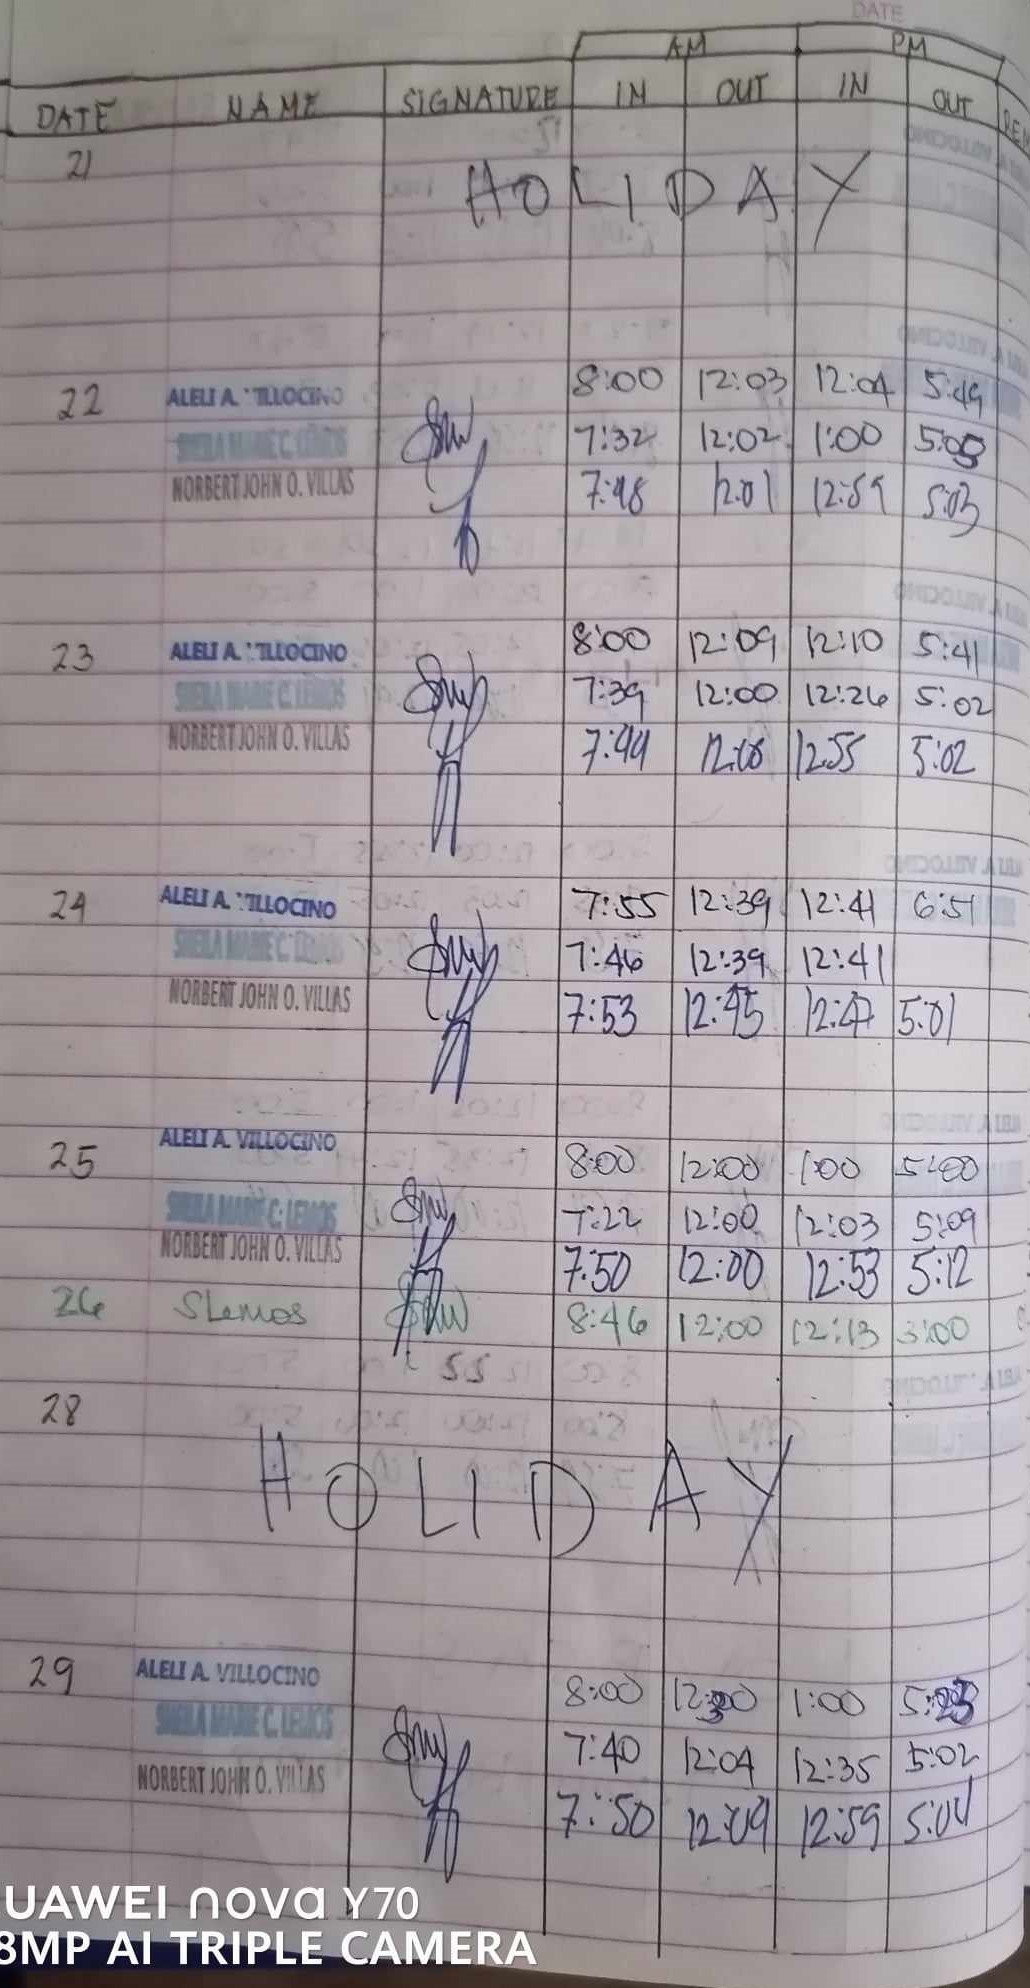 DATE
AM PM
DATE NAME SIGNATURE IN OUT IN OUT REM
21 HOLIDAY
22 ALELI A. VILLOCINO 8:00 12:03 12:04 5:49
SHEILA MARIE C. LEMOS 7:32 12:02 1:00 5:05
NORBERT JOHN O. VILLAS 7:48 12:01 12:59 5:03
23 ALELI A. VILLOCINO 8:00 12:09 12:10 5:41
SHEILA MARIE C. LEMOS 7:39 12:00 12:26 5:02
NORBERT JOHN O. VILLAS 7:44 12:08 12:55 5:02
24 ALELI A. VILLOCINO 7:55 12:39 12:41 6:51
SHEILA MARIE C. LEMOS 7:46 12:39 12:41
NORBERT JOHN O. VILLAS 7:53 12:45 12:47 5:01
25 ALELI A. VILLOCINO 8:00 12:00 1:00 5:00
SHEILA MARIE C. LEMOS 7:22 12:00 12:03 5:09
NORBERT JOHN O. VILLAS 7:50 12:00 12:53 5:12
26 SLemos 8:46 12:00 12:13 3:00
28
HOLIDAY
29 ALELI A. VILLOCINO 8:00 1:00
SHEILA MARIE C. LEMOS 7:40 12:04 12:35 5:02
NORBERT JOHN O. VILLAS 7:50 12:09 12:59 5:04
UAWEI nova Y70
8MP AI TRIPLE CAMERA